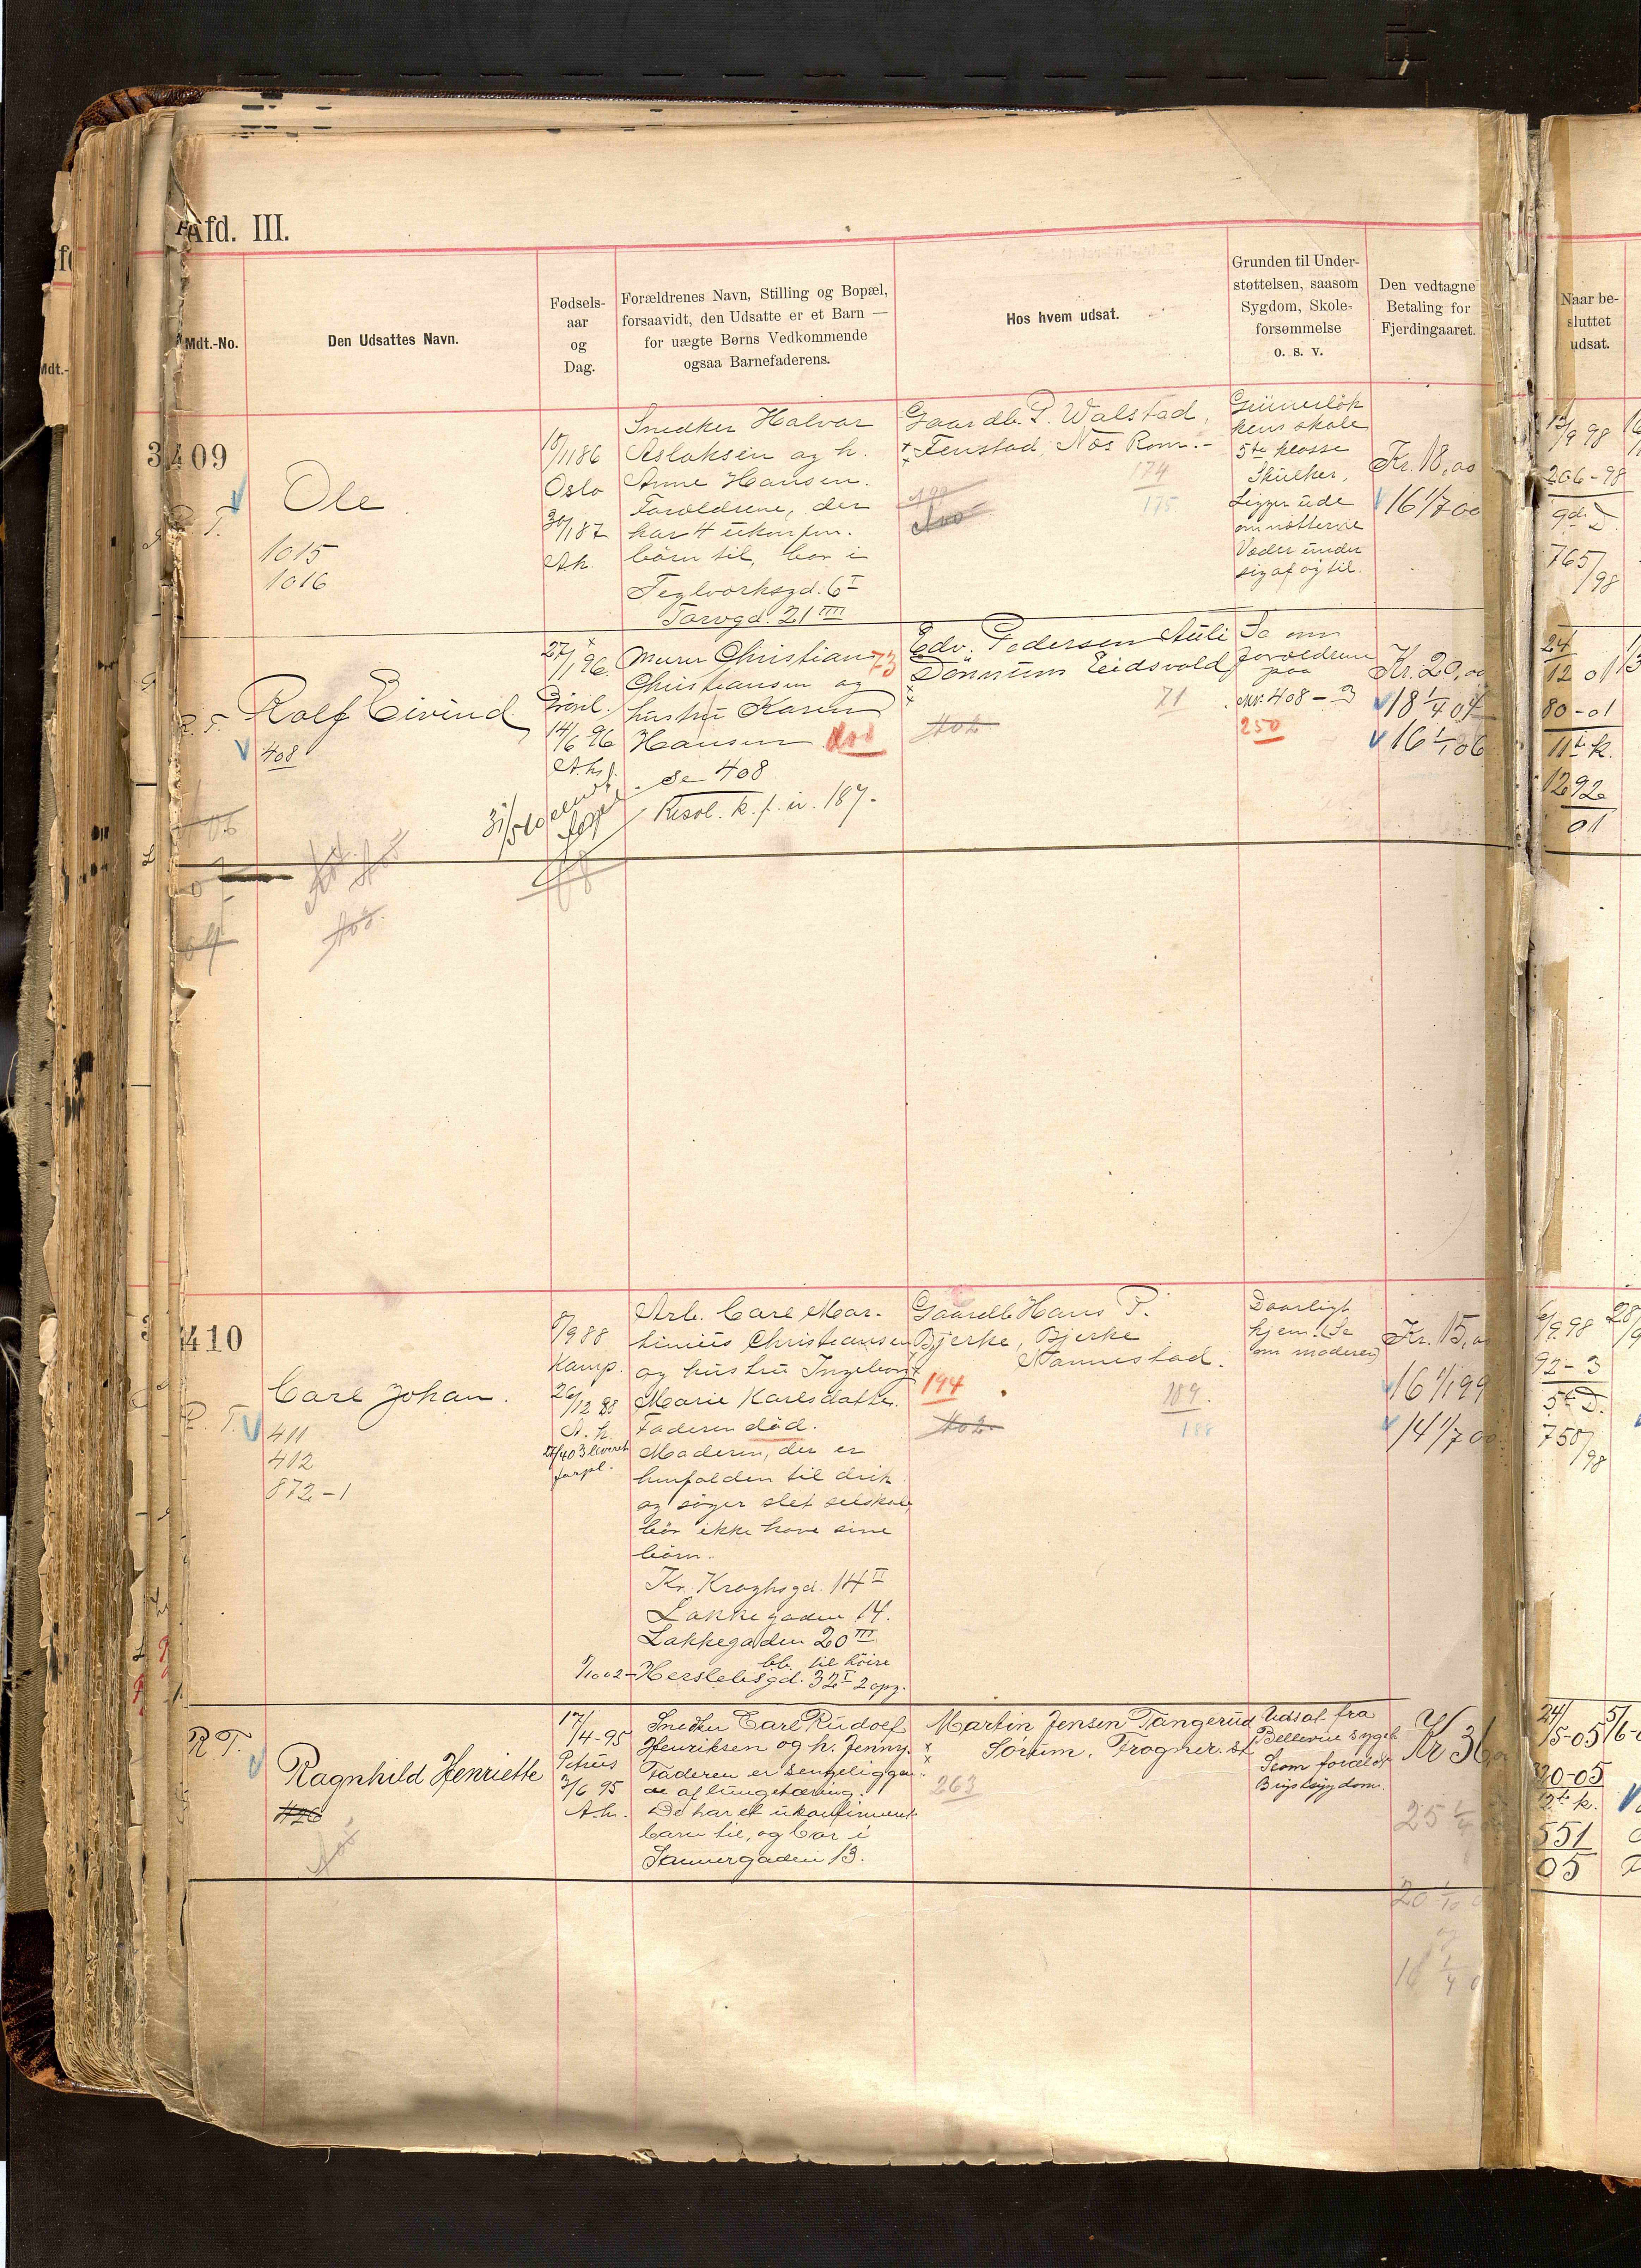 Afd. III.
Mdt.-No.
Den Udsattes Navn.
Fødsels-
aar
og
Dag.
Forældrenes Navn, Stilling og Bopæl,
forsaavidt, den Udsatte er et Barn —
for uægte Børns Vedkommende
ogsaa Barnefaderens.
Hos hvem udsat.
Grunden til Under-
støttelsen, saasom
Sygdom, Skole-
forsømmelse
o. s. v.
Den vedtagne
Betaling for
Fjerdingaaret.
Naar be-
sluttet
udsat.
409
Ole
1015
1016
Oslo
30/1 87
Ak.
Snedker Halvor
Aslaksen og h.
Anne Hansen.
Forældrene, der
har 4 ukonfirm.
børn til, bor i
Teglverksgd. 6 I
Torvgd. 21 IIII
Gaardb. P. Walstad,
Fenstad, Nos Rom.-
174
175
Grünerløk
kens skole
5te klasse
Skulker,
Ligger ude
om nætterne
Væder under
sig af og til.
Kr. 18,00
16 1/7 00
13/9 98
206-98
9de D.
765/98
R. T.
Rolf Eivind
408
27/1 96.
14/6 96
Murer Christian
Christiansen og
hustru Karen
Hansen død
73
se 408
Resol. k. f. u. 187.
Edv. Pedersen Auli
Dønnum Eidsvold
71
Se om
forældrene
paa
Nr. 408 - 3
250
Kr. 20,00
18 1/4 04
16 1/1 06
24/12 01
80-01
11te k.
1292/01
410
Carl Johan.
411
412
872-1
5/9 88
Kamp.
26/12 88
A. k.
27/4 03 leveret
forpl.
Arb. Carl Mar-
tinius Christiansen
og hustru Ingeborg
Marie Karlsdatter.
Faderen død.
Moderen, der er
henfalden til drik
og søger slet selskab,
bør ikke have sine
børn.
Kr. Kroghsgd. 14 II
Lakkegaden 14.
Lakkegaden 20 III
bb. til høire
Herslebsgd. 32 I 2 opg.
Gaardb. Hans P.
Bjerke, Bjerke
Nannestad.
194
189.
188
Daarligt
hjem. (Se
om moderen)
Kr. 15,00
16 1/1 99
14 1/7 00
6/9 98
92-3
5te D.
750/98
R T.
Ragnhild Henriette
17/4-95
Petrus
3/6 95
A. k.
Snedker Carl Rudolf
Henriksen og h. Jenny.
Faderen er sengeliggen-
de af lungetæring.
De har et ukonfirmert
barn til, og bor i
Sannergaden 13.
Martin Jensen Tangerud
Sørum. Frogner. st.
263
Udsat fra
Bellevue sygeh
Som forældr
Brystsygdom.
Kr 36,
25 1/4
20 1/10
16 1/4
24/5-05
20-05
12te k.
551
05